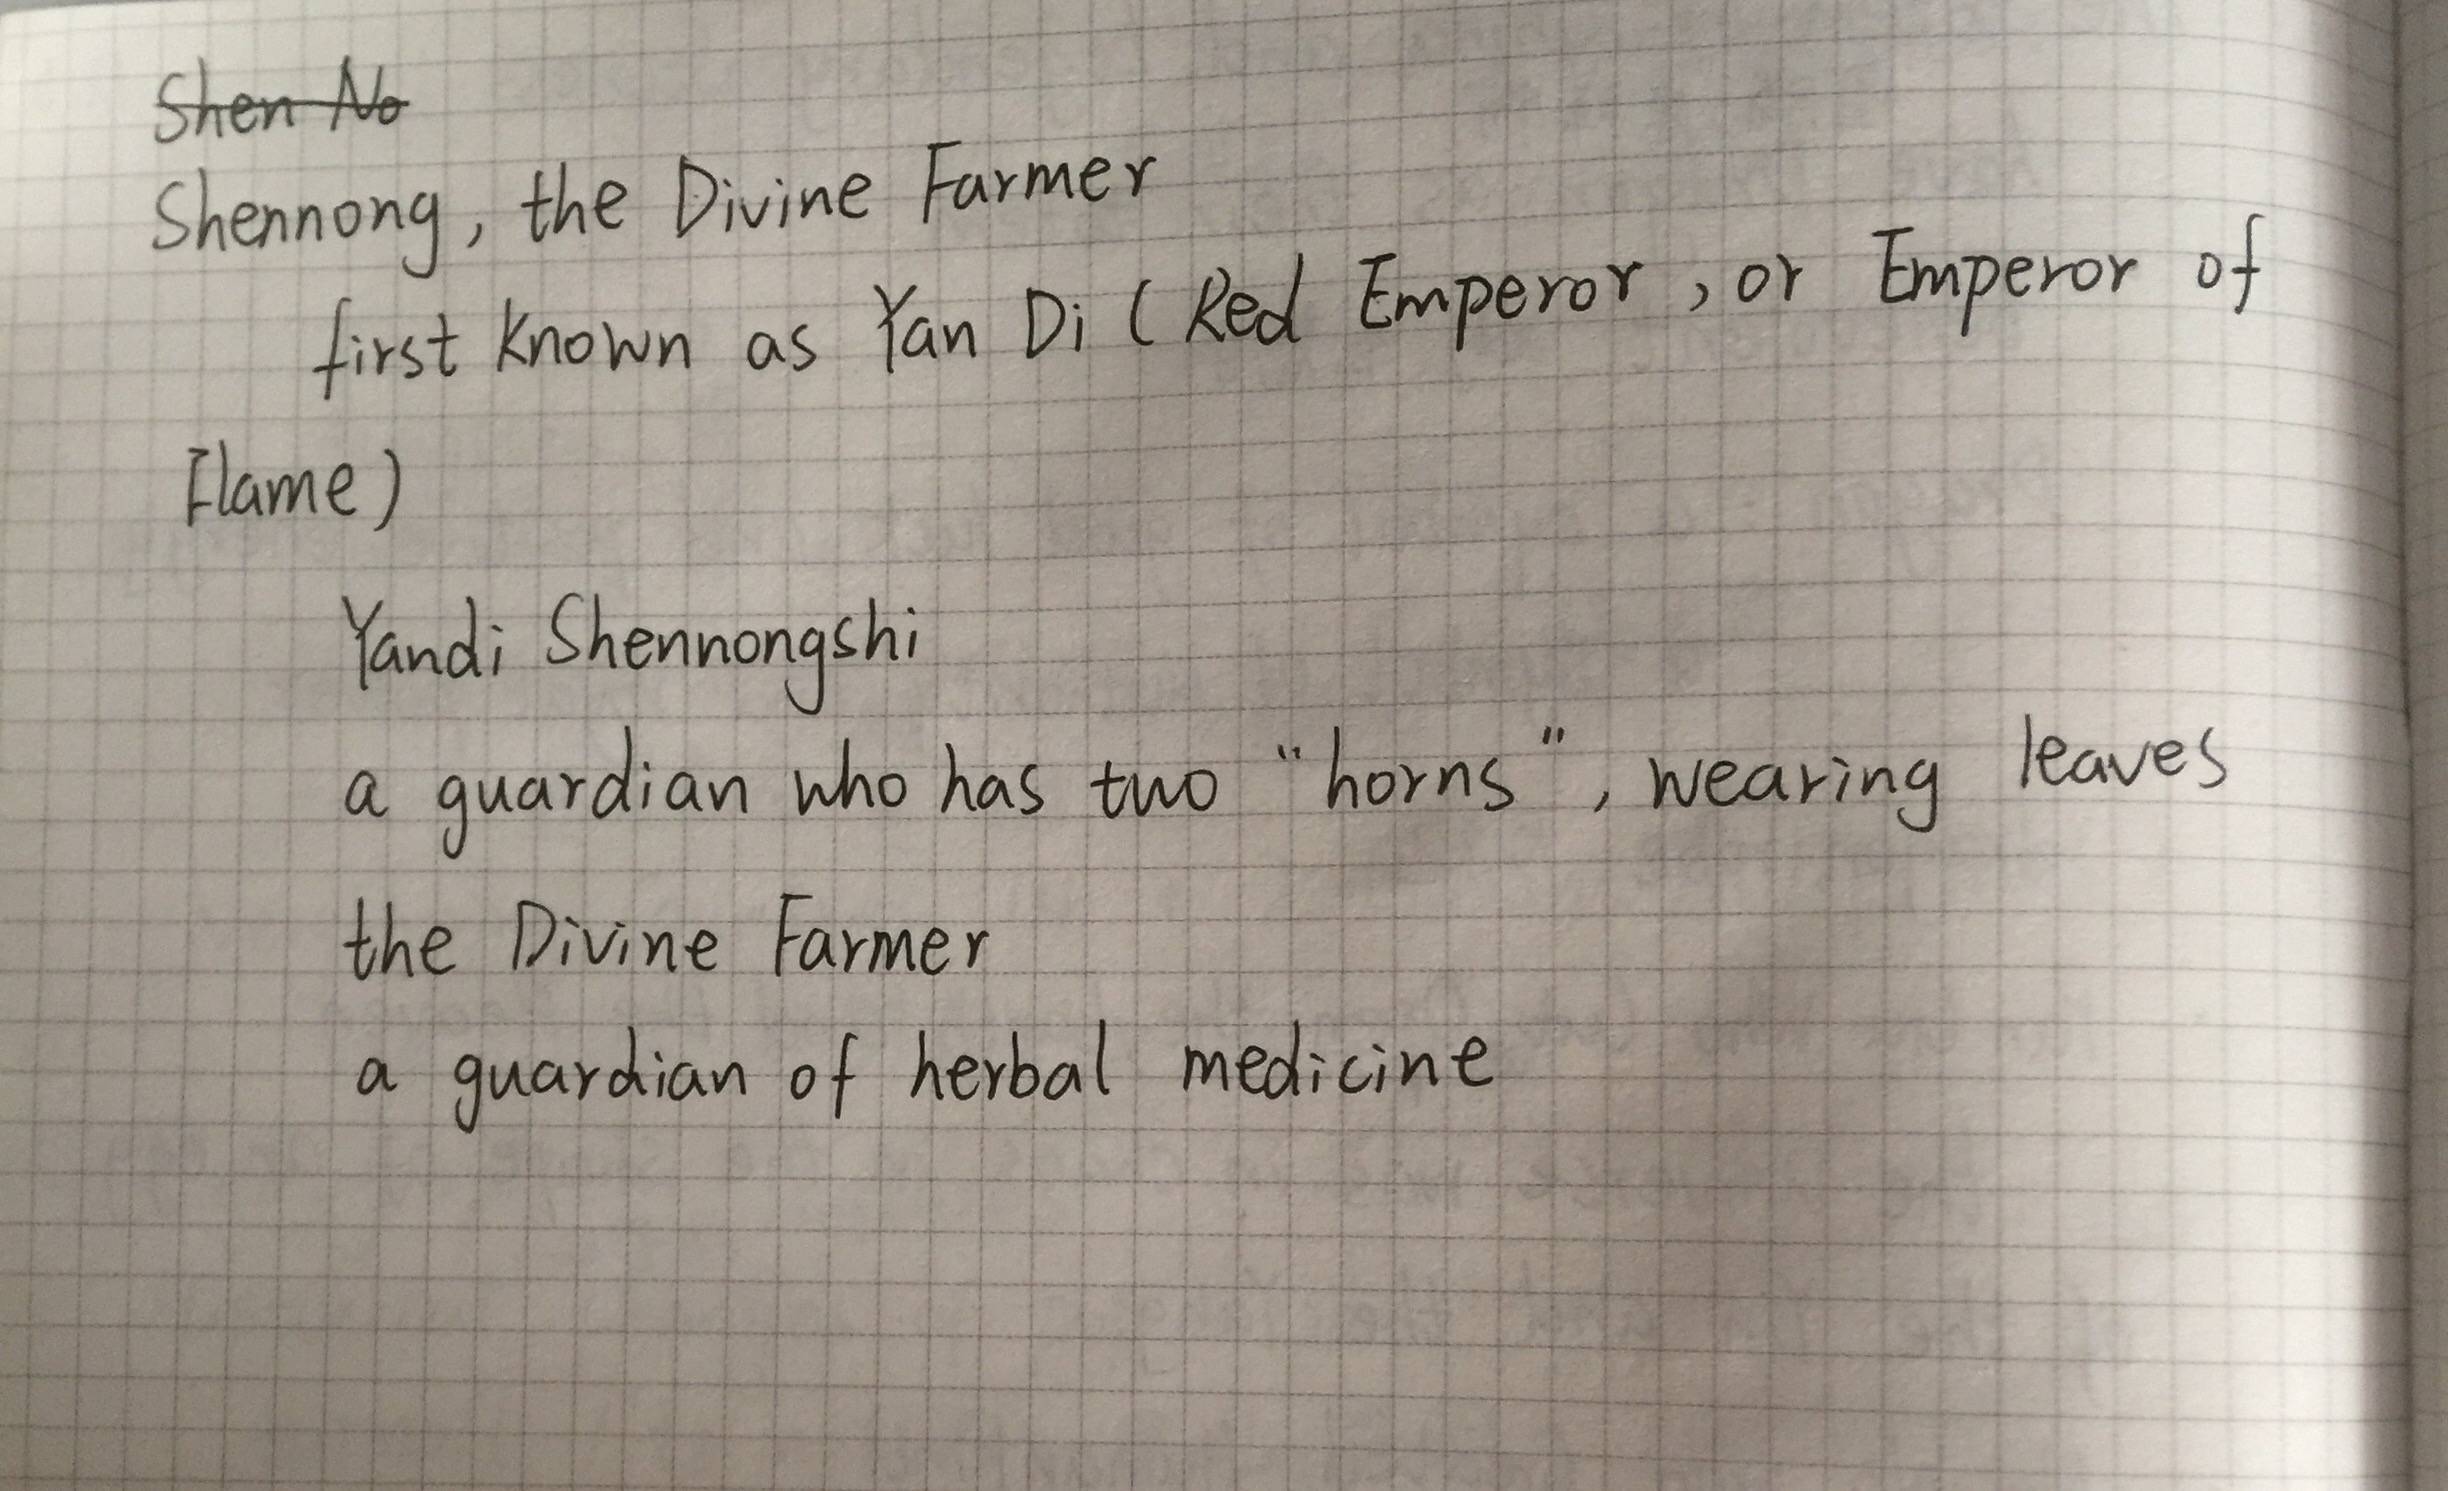 Shen No
Shennong, the Divine Farmer
first known as Yan Di (Red Emperor, or Emperor of
Flame)
Yandi Shennongshi
a guardian who has two "horns", wearing leaves
the Divine Farmer
a guardian of herbal medicine